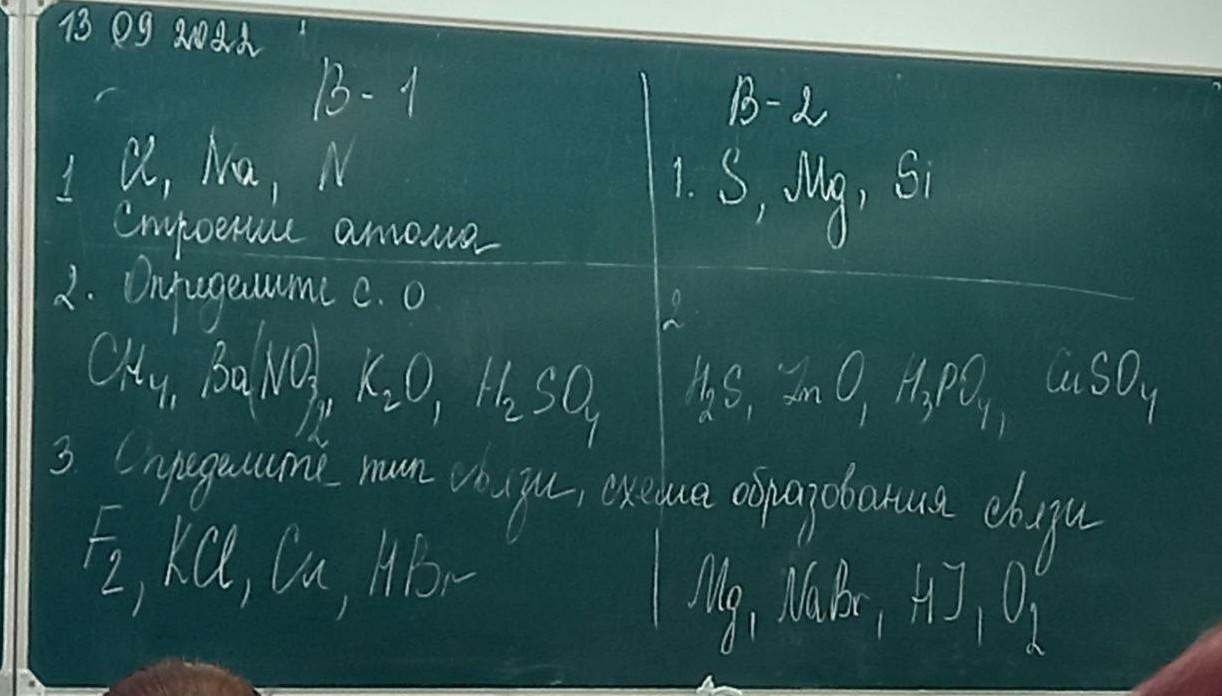 13 09 2022
В-1
1 Cl, Na, N
Строение атома
2. Определите с. о
CH₄, Ba(NO₃)₂, K₂O, H₂SO₄
3. Определите тип связи, схема образования связи
F₂, KCl, Cu, HBr
В-2
1. S, Mg, Si
2.
H₂S, ZnO, H₃PO₄, CuSO₄
Mg, NaBr, HJ, O₂